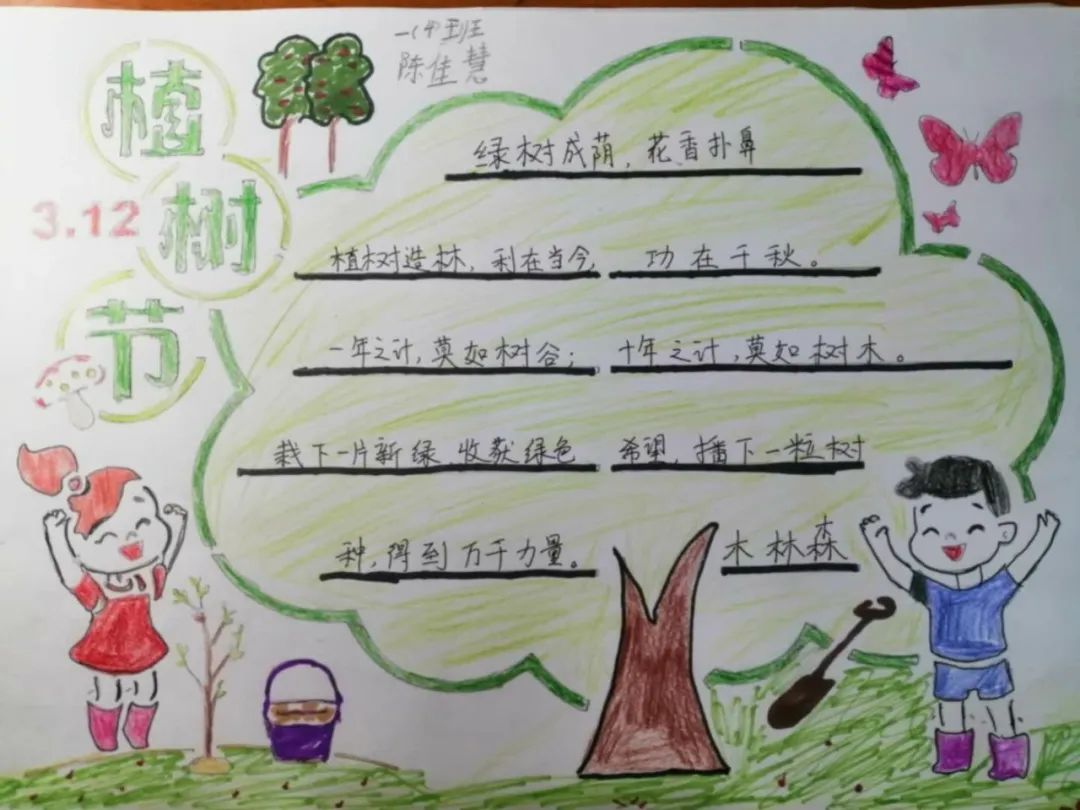 一(4)班
陈佳慧
植
树
节
3.12
绿树成荫，花香扑鼻
植树造林，利在当今，功在千秋。
一年之计，莫如树谷；十年之计，莫如树木。
栽下一片新绿 收获绿色 希望，播下一粒树
种，得到万千力量。 木林森